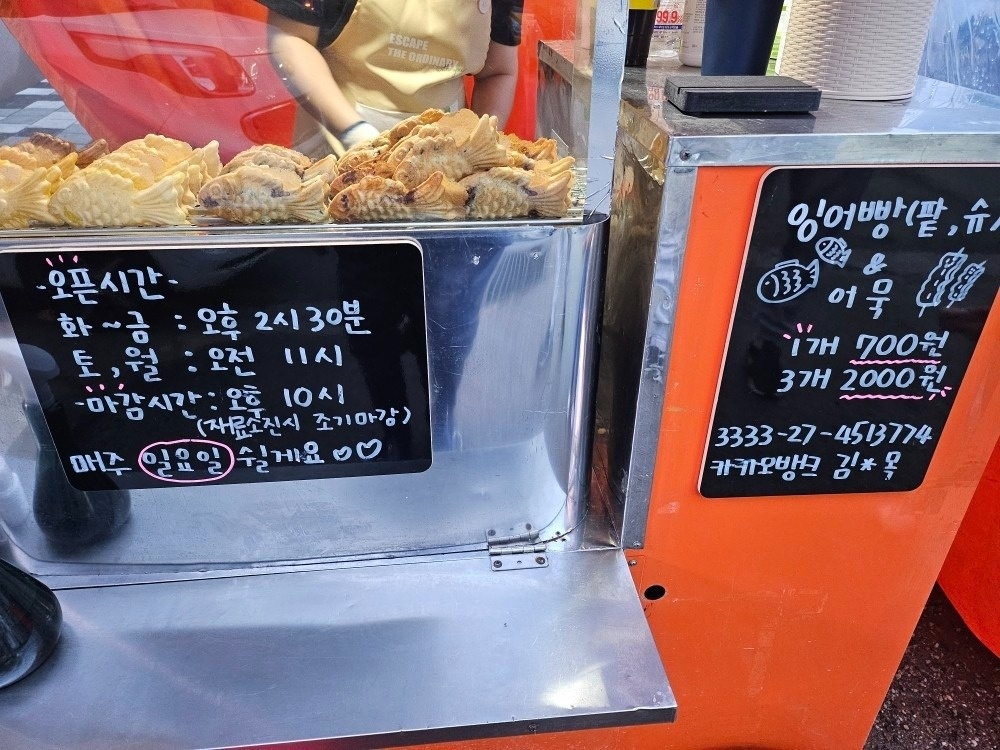 ESCAPE
THE ORDINARY
99.9
-오픈시간-
화~금 : 오후 2시 30분
토,월 : 오전 11시
-마감시간 : 오후 10시
(재료소진시 조기마감)
매주 일요일 쉴게요♡♡
잉어빵(팥,슈)
&
어묵
1개 700원
3개 2000원
3333-27-4513774
카카오뱅크 김*목